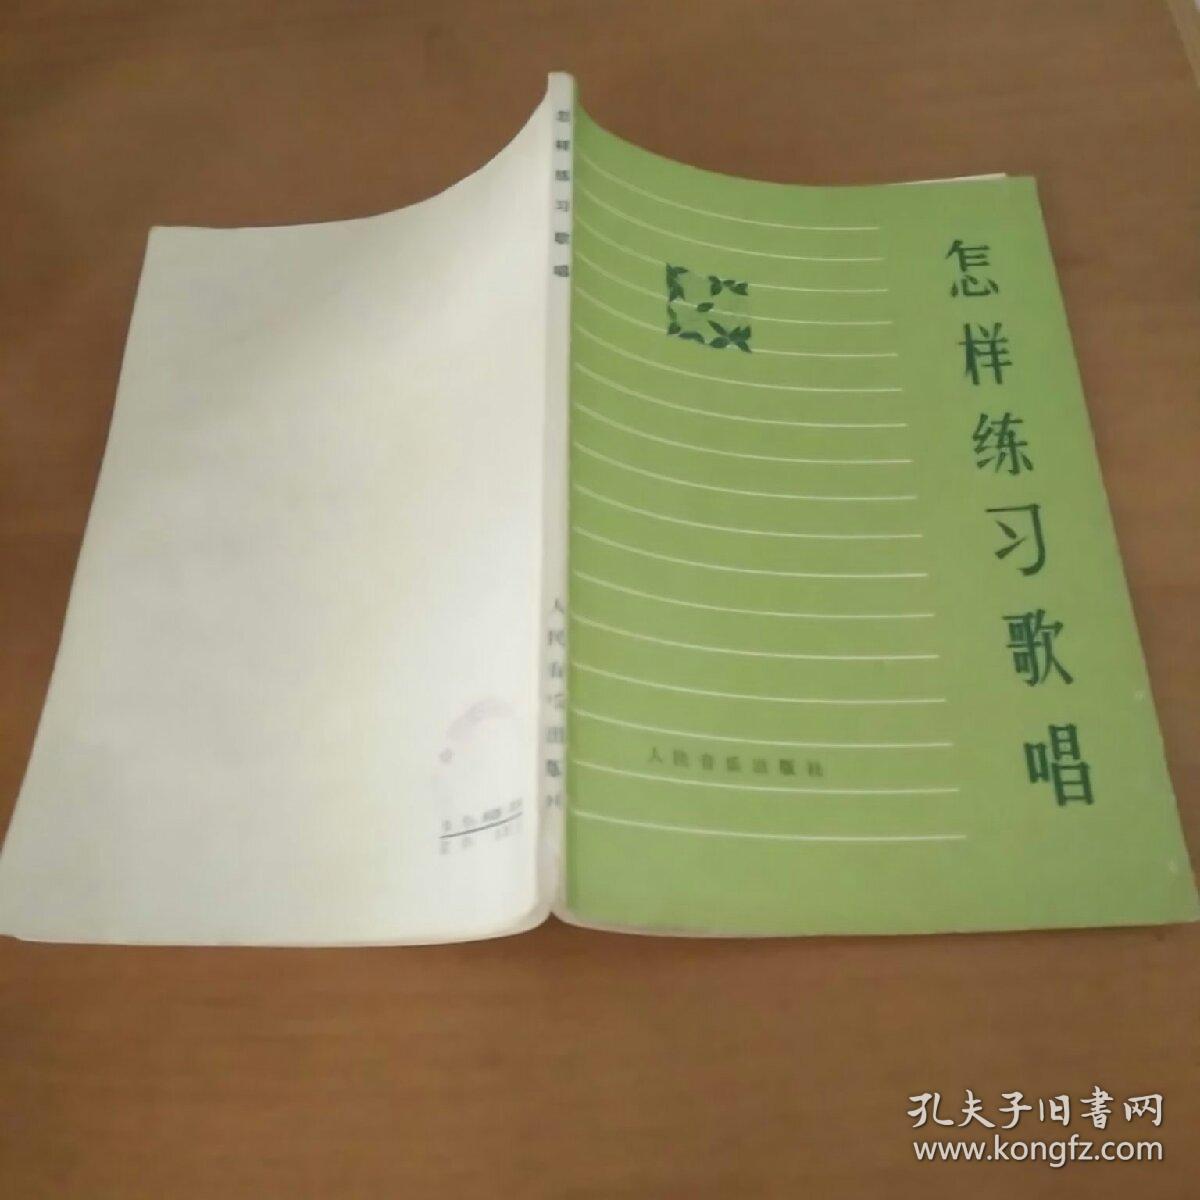 怎样练习歌唱
人民音乐出版社
怎样练习歌唱
人民音乐出版社
孔夫子旧书网
www.kongfz.com